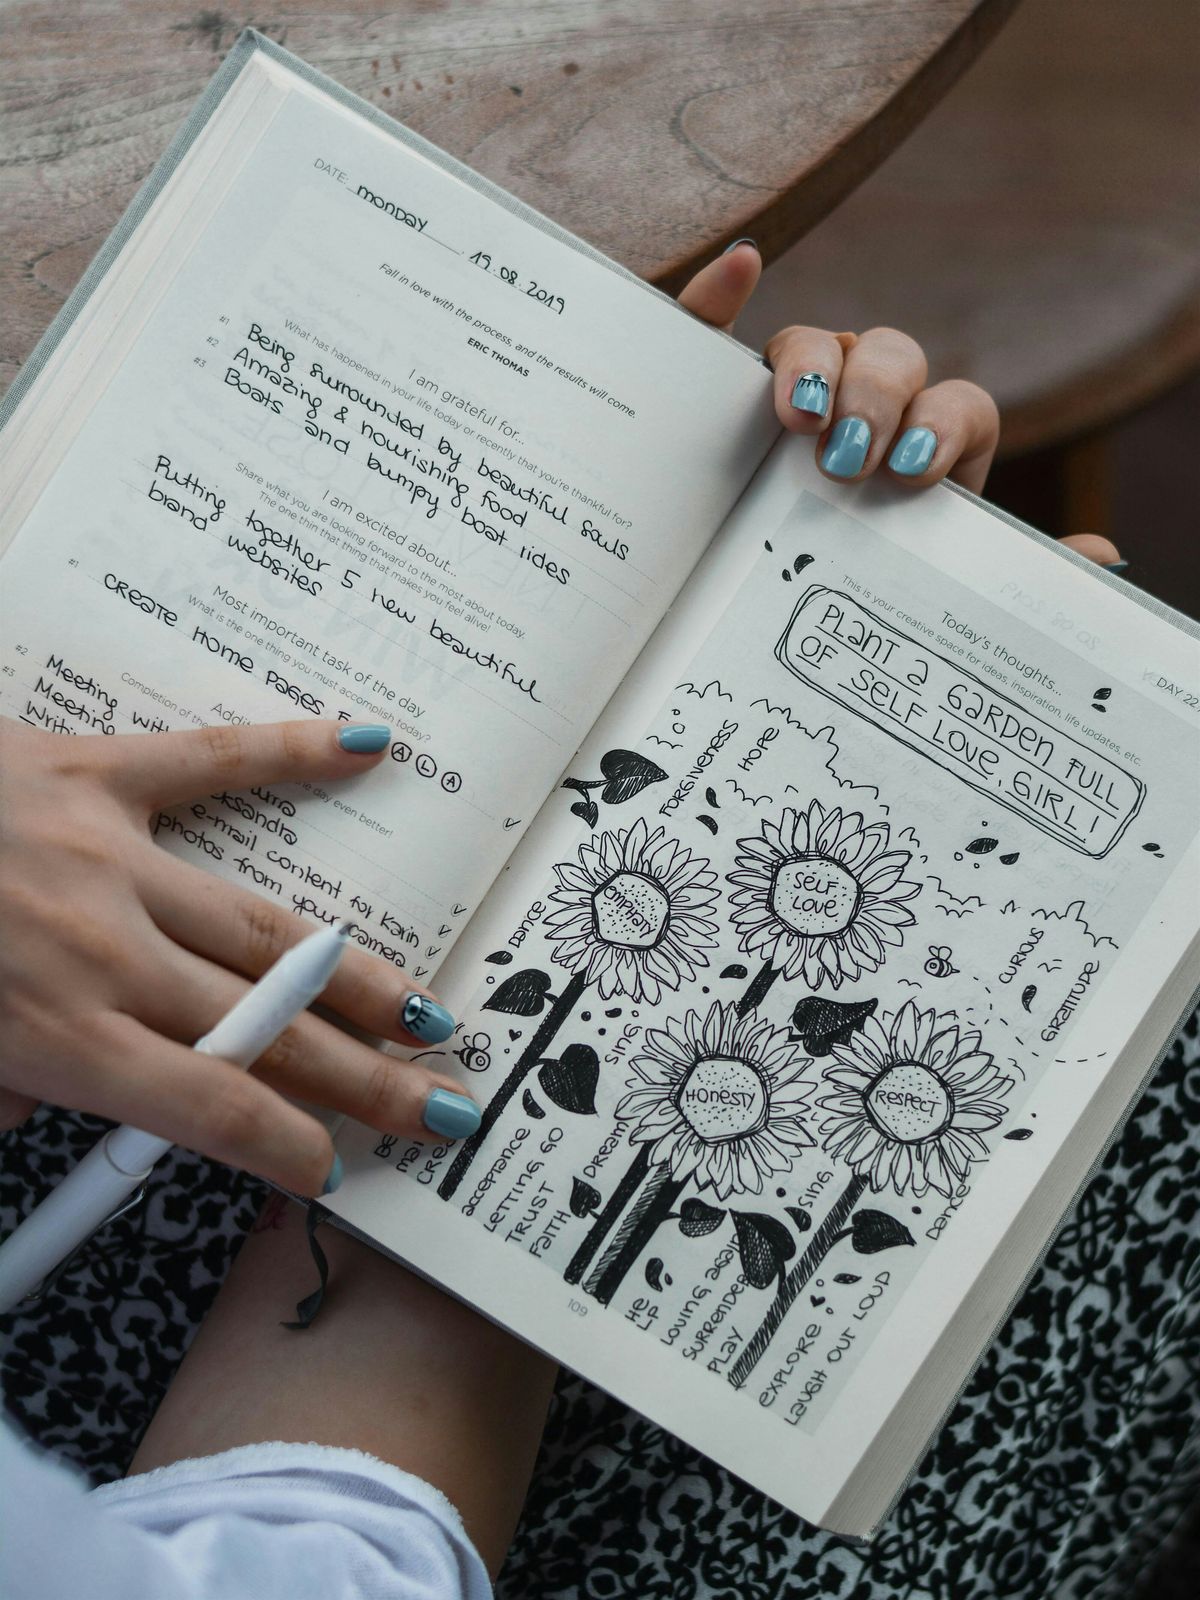 DATE: monday 19.08.2019
Fall in love with the process, and the results will come.
ERIC THOMAS
I am grateful for...
What has happened in your life today or recently that you're thankful for?
#1 Being surrounded by beautiful souls
#2 Amazing & nourishing food
#3 Boats and bumpy boat rides
I am excited about...
Share what you are looking forward to the most about today.
The one thin that thing that makes you feel alive!
Putting together 5 new beautiful
brand websites
Most important task of the day
What is the one thing you must accomplish today?
#1 CREATE HOME PAGES
ALA
Completion of the
day even better!
#2 Meeting with
#3 Meeting
e-mail content for Karin
photos from your camera
DAY 22
Today's thoughts...
This is your creative space for ideas, inspiration, life updates, etc.
PLANT a GARDEN FULL
OF SELF LOVE, GIRL!
FORGIVENESS
HOPE
EMPHATY
SELF
LOVE
DANCE
CURIOUS
GRATITUDE
SING
HONESTY
RESPECT
acceptance
LETTING GO
TRUST
FAITH
DREAM
SING
DANCE
HE
LP
LOVING again
SURRENDER
PLAY
EXPLORE
LAUGH OUT LOUD
109